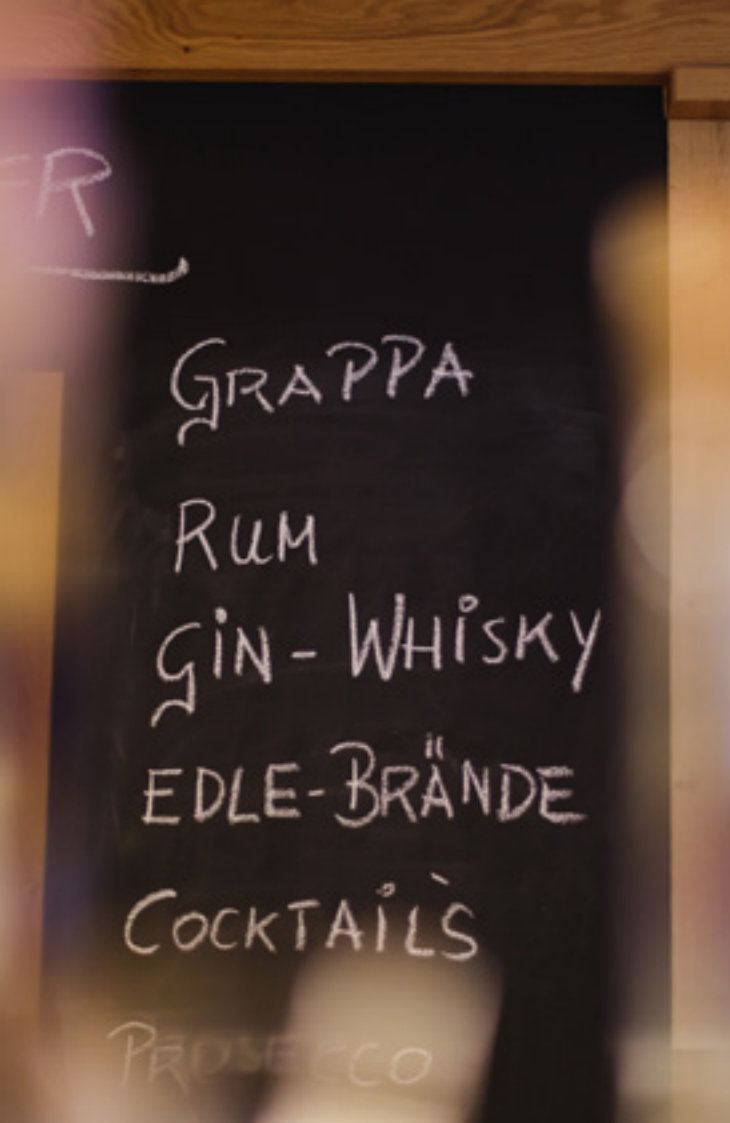 ER
GRAPPA
RUM
GIN - WHISKY
EDLE-BRÄNDE
COCKTAIL`S
PROSECCO